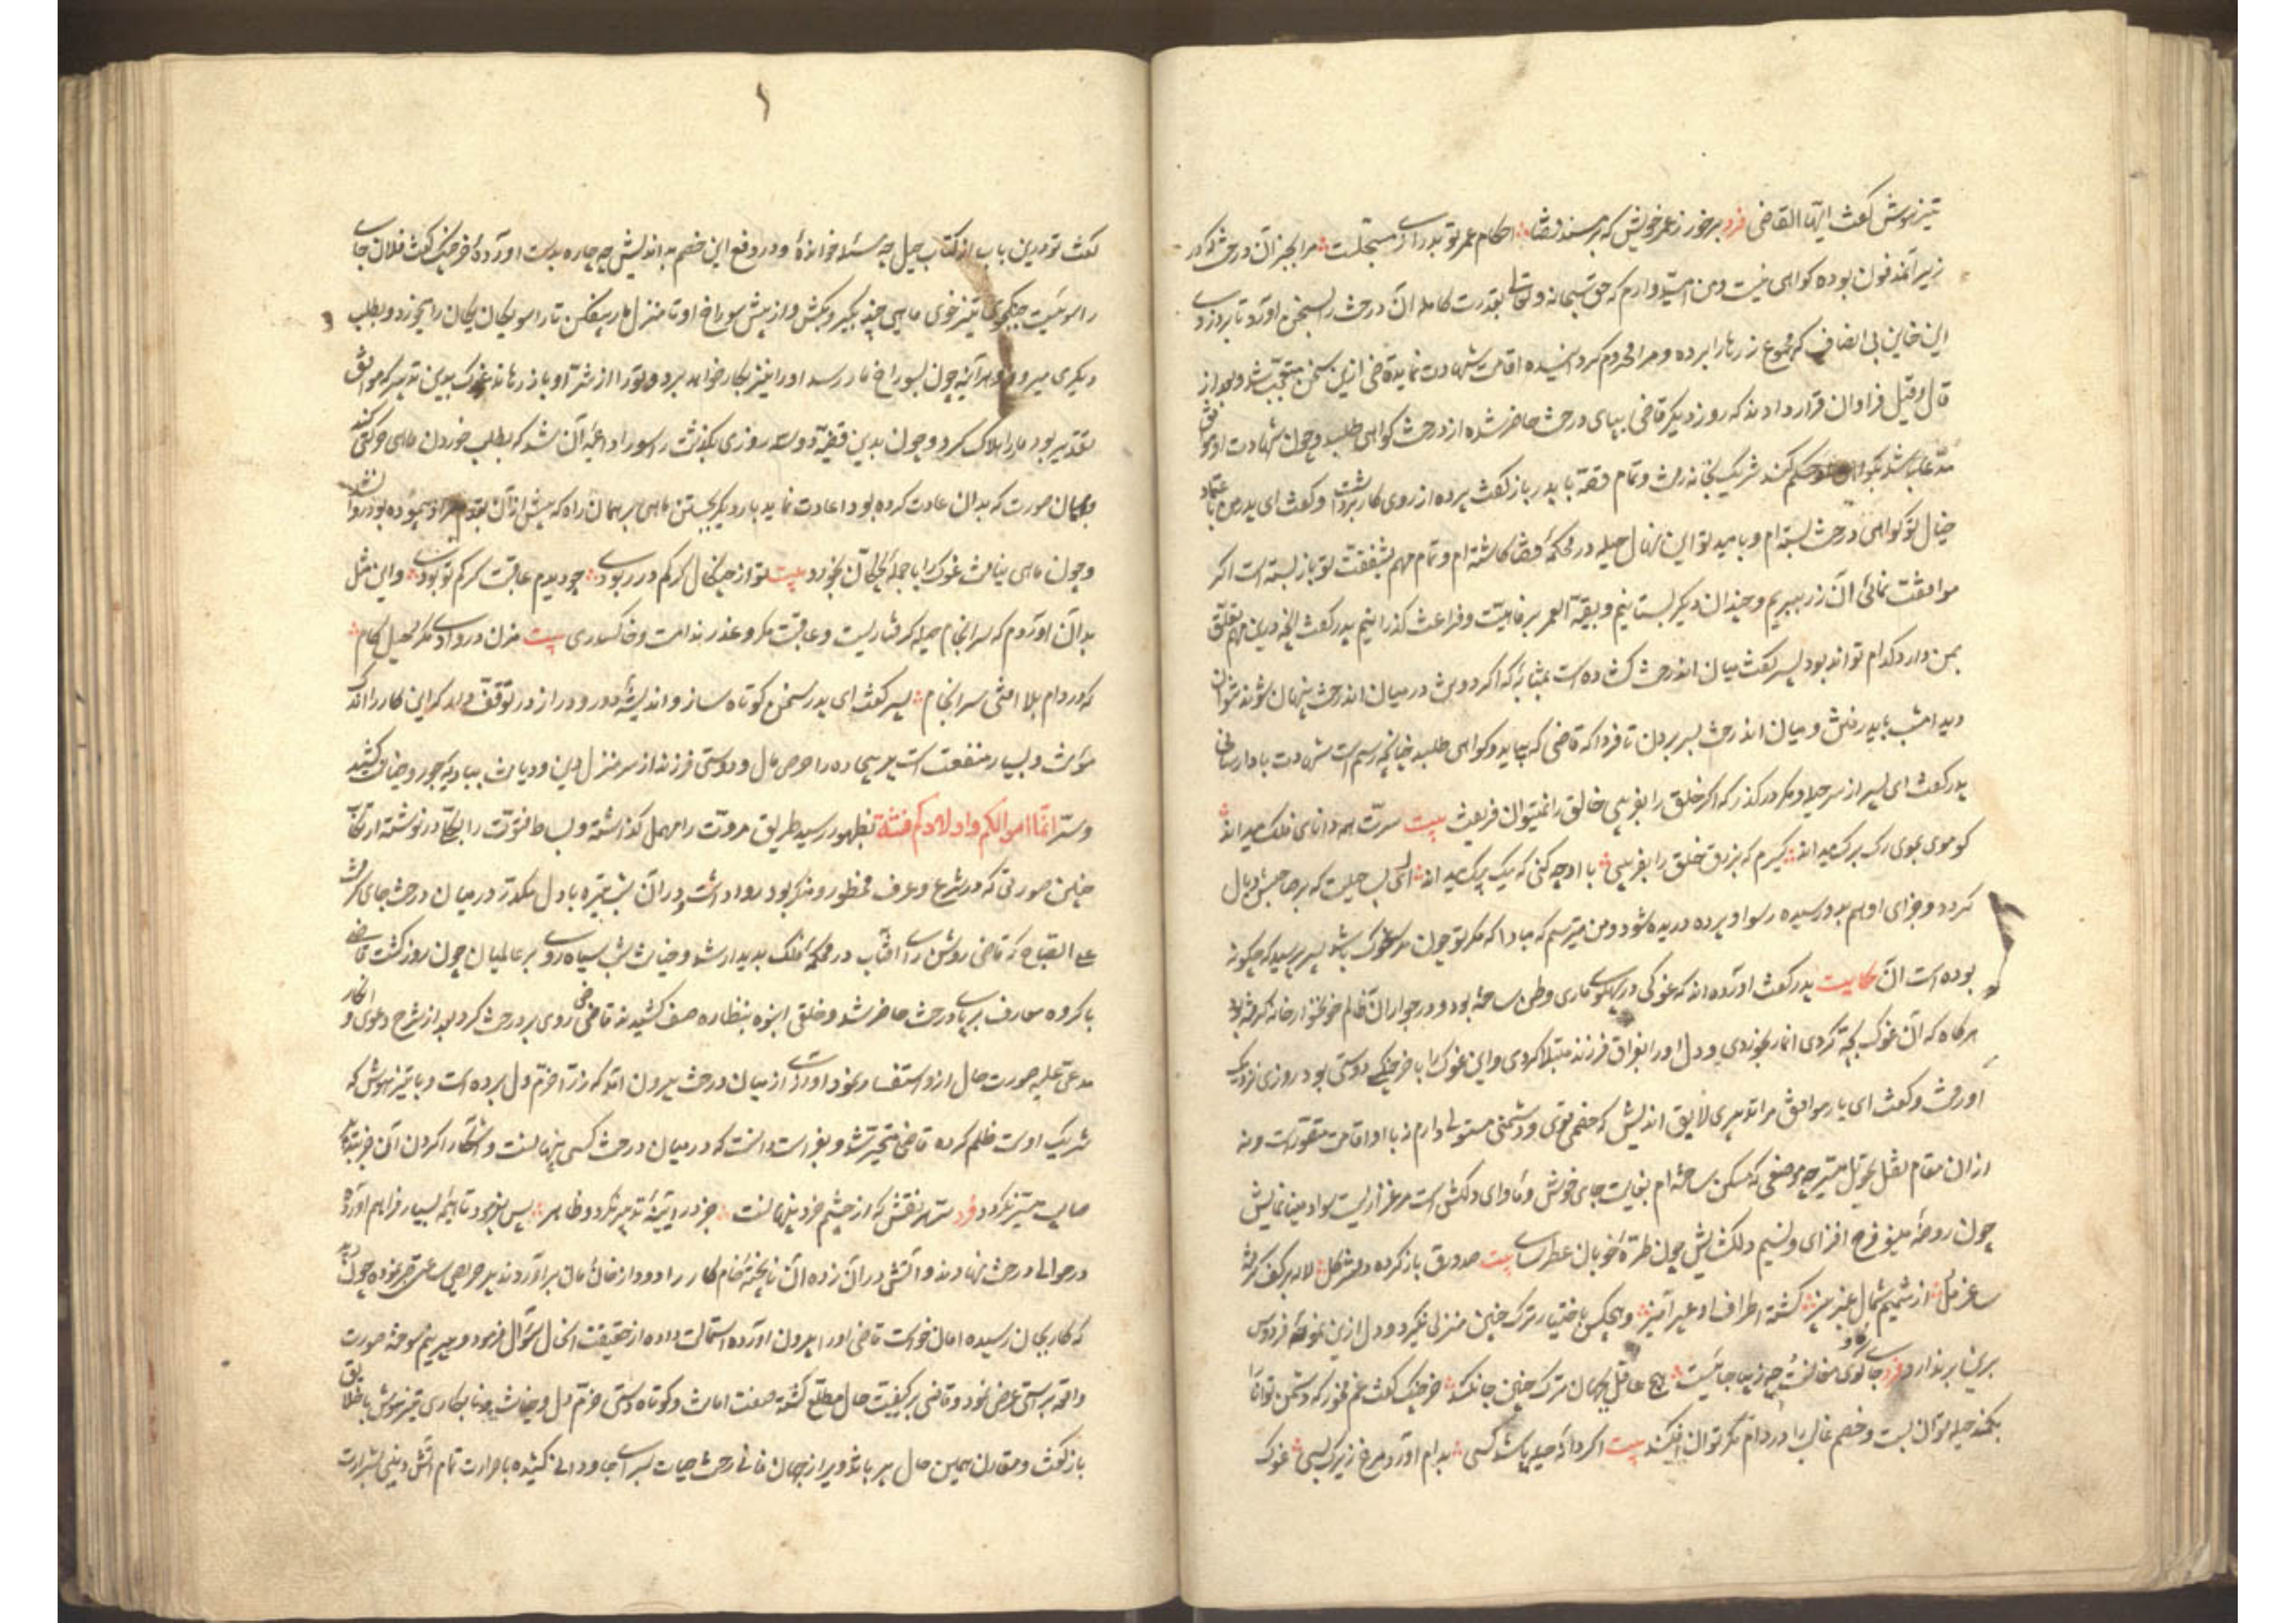 تیزهوش گفت ایها القاضی فرد برخور ز عمر خویش که بر مسند قضا احکام عمر تو بدرازی مسجلست مرا بجز آن درخت که در
زیر آن مدفون بوده گواهی نیست و من امیدوارم که حق سبحانه و تعالی بقدرت کامله آن درخت را بسخن آورد تا بر دزدی
این خاین بی انصاف که مجموع زرها را برده و مرا محروم گردانیده اقامت شهادت نماید قاضی ازین سخن متعجب شد و بعد از
قال و قیل فراوان قرار دادند که روز دیگر قاضی بپای درخت حاضر شده از درخت گواهی طلبد و چون شهادت او موافق
مدعا باشد بگواهی او حکم کند شریک بخانه رفت و تمام قصه با پدر باز گفت پرده از روی کار برداشت و گفت ای پدر من باعتماد
خیال تو گواهی درخت بسته ام و بامید تو این نهال حیله در محکمه قضا کاشته ام و تمام مهم بشفقت تو باز بسته است اگر
موافقت نمائی آن زر ببریم و چندان دیگر بستانیم و بقیة العمر برفاهیت و فراغت گذرانیم پدر گفت آنچه درین مهم تعلق
بمن دارد کدام تواند بود پسر گفت میان آن درخت گشاده است بمثابه که اگر دو تن در میان آن درخت پنهان شوند نتوان
دید امشب باید رفتن و میان آن درخت بسر بردن تا فردا که قاضی که بیاید و گواهی طلبد چنانچه رسم است شهادت بادا رسانی
پدر گفت ای پسر از سر حیله و مکر در گذر که اگر خلق را بفریبی خالق را نمیتوان فریفت بیت سرت همه دانای فلک میداند
کو موی بموی رگ برگ میداند گیرم که بزرق خلق را بفریبی با او چه کنی که یک بیک میداند ای بسا حیلت که بر صاحبش وبال
گردد و جزای او هم بدو رسیده رسوا و پرده دریده شود و من میترسم که مبادا که مکر تو چون مکر غوک باشد پسر پرسید که چگونه
بوده است آن حکایت پدر گفت آورده اند که غوکی در پهلوی ماری وطن ساخته بود و در جوار آن ظالم خونخوار خانه گرفته بود
هرگاه که آن غوک بچه کردی مار بخوردی و دل او را بفراق فرزند مبتلا کردی و این غوک را با خرچنگی دوستی بود روزی نزدیک
او رفت و گفت ای یار موافق مرا تدبیری لایق اندیش که خصمی قوی و دشمنی مستولی دارم نه با او اقامت متصورست و نه
از آن مقام نقل و تحویل میسر چه موضعی که مسکن ساخته ام بغایت جای خوش و ماوای دلکش است مرغزاریست سواد مینا نمایش
چون روضه مینو فرح افزای و نسیم دلگشایش چون طره خوبان عطرسای بیت صد ورق باز کرده دفتر گل لاله بر کف گرفته
ساغر مل از شمیم شمال عنبر بیز گشته اطراف او عبیر آمیز و هیچکس باختیار ترک چنین منزلی نگیرد و دل ازین نمونه فردوس
برین بر ندارد فرد جای کوی مغانست چه زیبا جائیست هیچ عاقل بجهان ترک چنین جا نکند خرچنگ گفت غم مخور که دشمن توانا را
بکمند حیله توان بست و خصم غالب را در دام مکر توان افکند بیت اگر دانه حیله پاشد کسی بدام آورد مرغ زیرک بسی غوک
گفت تو درین باب از کتاب حیل چه مسئله خوانده و در دفع این خصم بد اندیش چه چاره بدست آورده خرچنگ گفت فلان جای
راسوئیست جنگجوی تیز خوی ماهی چند بگیر و بکش و از پیش سوراخ او تا منزل مار بیفکن تا راسو یکان یکان را بخورد و بطلب
دیگری میرود و هر آینه چون بسوراخ مار رسد او را نیز بکار خواهد برد و تو را از شر او باز رهاند غوک بدین تدبیر که موافق
تقدیر بود مار را هلاک کرد و چون بدین قضیه دو سه روزی بگذشت راسو را داعیه آن شد که بطلب خوردن ماهی حرکتی کند
و بهمان صورت که بدان عادت کرده بود اعادت نماید بار دیگر بجستن ماهی بر همان راه که پیش از آن بقدم پیموده بود روان شد
و چون ماهی نیافت غوک را با جمله بچگان بخورد بیت تو از چنگال گرگم در ربودی چو دیدم عاقبت گرگم تو بودی و این مثل
بدان آوردم که سرانجام حیله گرفتاریست و عاقبت مکر و عذر ندامت و خاکساری بیت مزن در وادی مکر و حیل گام
که در دام بلا افتی سرانجام پسر گفت ای پدر سخن کوتاه ساز و اندیشه دور و دراز در توقف دار که این کار را اندک
مؤنث و بسیار منفعت است پیر بیچاره را حرص مال و دوستی فرزند از سر منزل دین و دیانت ببادیه جور و خیانت کشید
و سر انما اموالکم و اولادکم فتنة بظهور رسید طریق مروت را مهمل گذاشته و بساط فتوت را بکلی در نوشته ارتکاب
چنین صورتی که در شرع و عرف محظور و منکر بود روا داشت و در آن شب تیره با دل مکدر در میان درخت جای گرفت
علی الصباح که قاضی روشن رای آفتاب در محکمه فلک پدیدار شد و خیانت شب سیاه روی بر عالمیان چون روز گشت قاضی
با گروه معارف بر پای درخت حاضر شد و خلقی انبوه بنظاره صف کشیدند قاضی روی بر درخت کرد بعد از شرح دعوی و انکار
مدعی علیه صورت حال ازو استفسار نمود آوازی از میان درخت بیرون آمد که زر را خرم دل برده است و با تیزهوش که
شریک اوست ظلم کرده قاضی متحیر شد و بفراست دانست که در میان درخت کسی پنهانست و آشکارا کردن آن جز بتدبیر
صایب متیسر نگردد فرد هر نقش که از چشم خرد پنهانست جز در آیینه تدبیر نگردد ظاهر پس بفرمود تا هیمه بسیار فراهم آورده
در حوالی درخت نهادند و آتش در آن زده آن ناپخته خام کار را دود از خان و مان برآوردند پیر حریص ساعتی صبر نموده چون دید
که کار بجان رسیده امان خواست قاضی او را بیرون آورده استمالت داده از حقیقت احوال سؤال فرمود و پیر نیم سوخته صورت
واقعه براستی عرض نمود و قاضی بر کیفیت حال مطلع گشته صفت امانت و کوتاه دستی خرم دل و خیانت و نابکاری تیزهوش با خلایق
باز گفت و مقارن همین حال پیر با تزویر از جهان فانی رخت حیات بسرای جاودانی کشیده با حرارت تمام آتش دنیا بشرارت